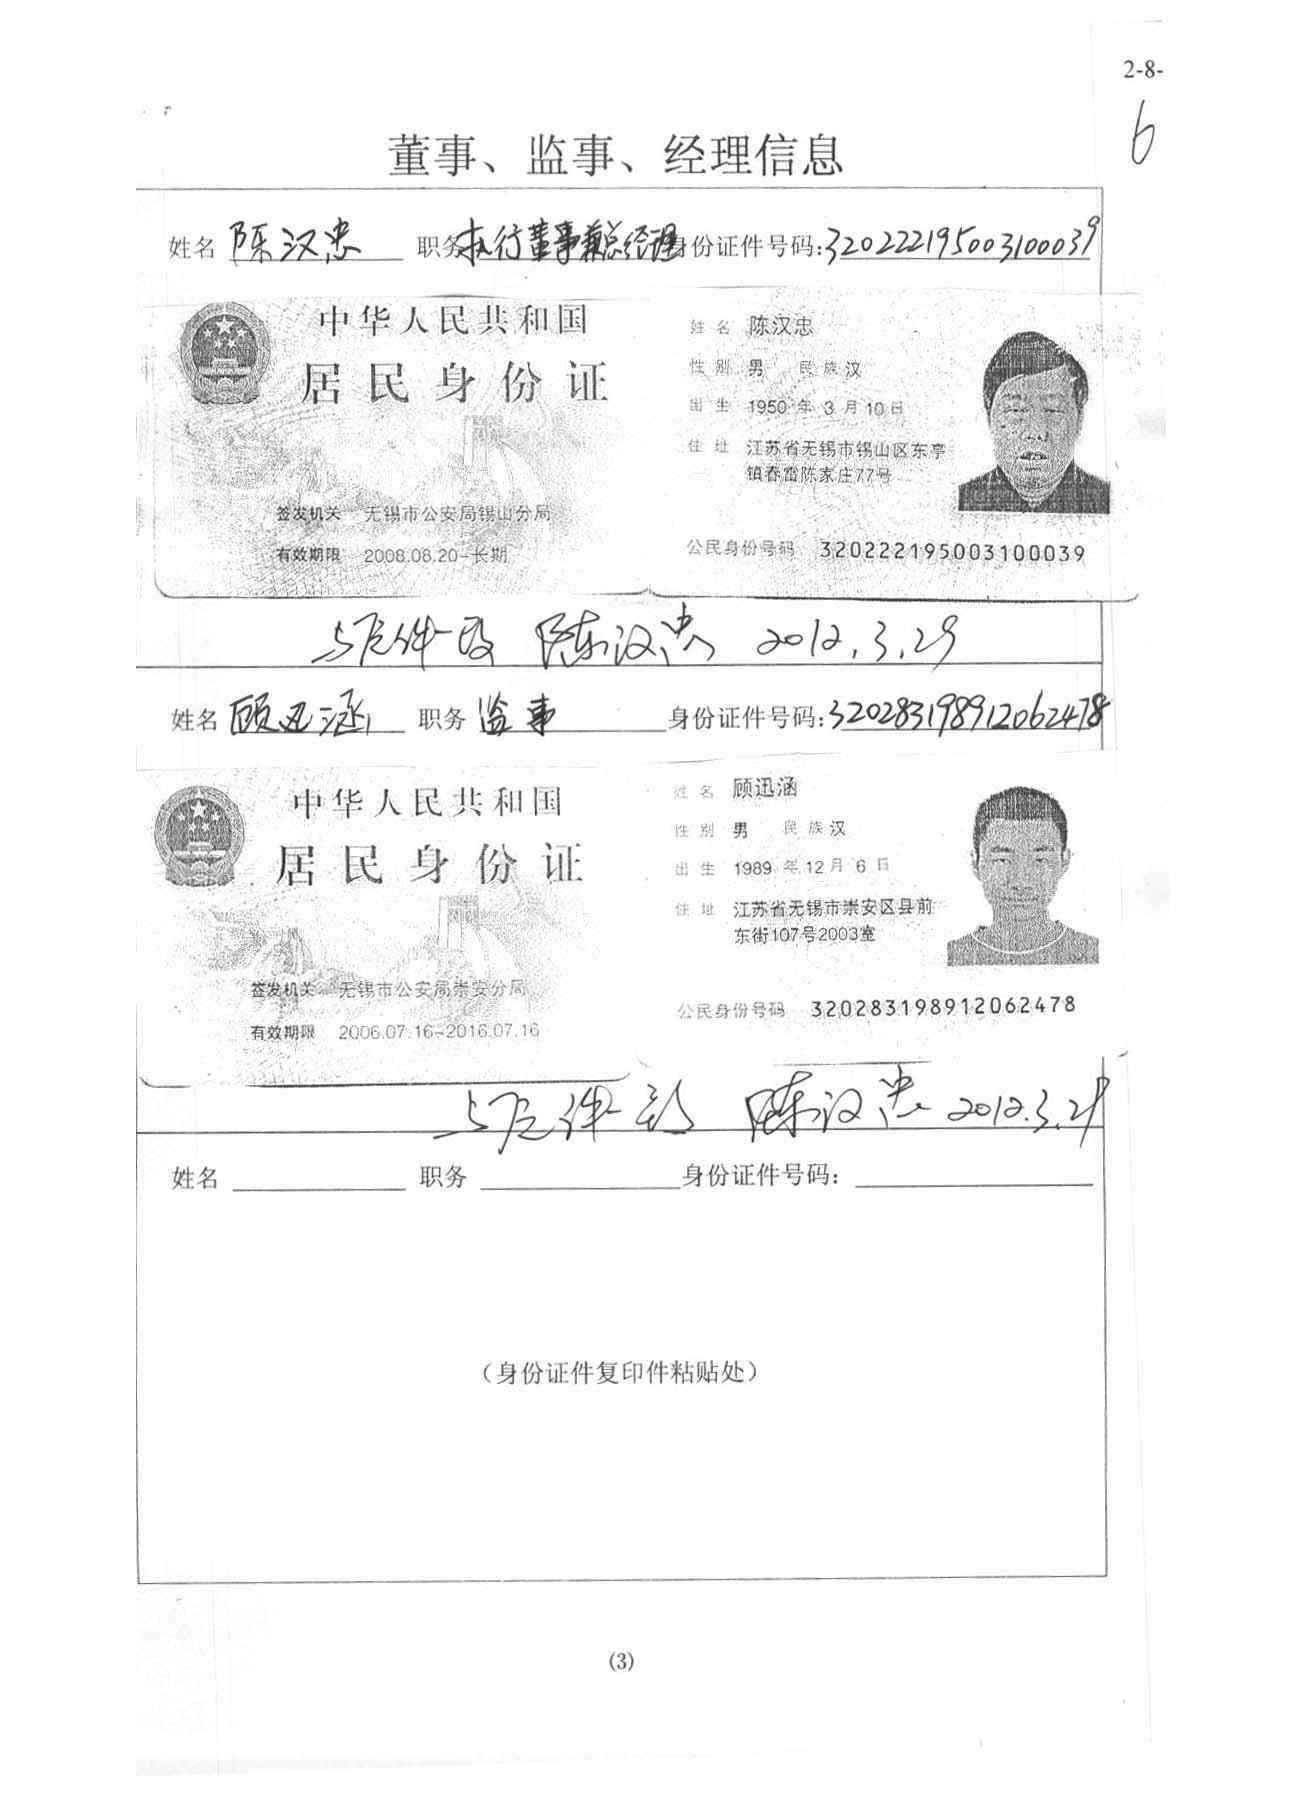 2-8-
6
董事、监事、经理信息
姓名 陈汉忠 职务 执行董事兼总经理 身份证件号码:320222195003100039
中华人民共和国
居民身份证
签发机关 无锡市公安局锡山分局
有效期限 2008.08.20-长期
姓名 陈汉忠
性别 男 民族 汉
出生 1950年3月10日
住址 江苏省无锡市锡山区东亭
镇春雷陈家庄77号
公民身份号码 320222195003100039
与原件一致 陈汉忠 2012.3.29
姓名 顾迅涵 职务 监事 身份证件号码:320283198912062478
中华人民共和国
居民身份证
签发机关 无锡市公安局崇安分局
有效期限 2006.07.16-2016.07.16
姓名 顾迅涵
性别 男 民族 汉
出生 1989年12月6日
住址 江苏省无锡市崇安区县前
东街107号2003室
公民身份号码 320283198912062478
与原件一致 陈汉忠 2012.3.29
姓名 职务 身份证件号码:
(身份证件复印件粘贴处)
(3)